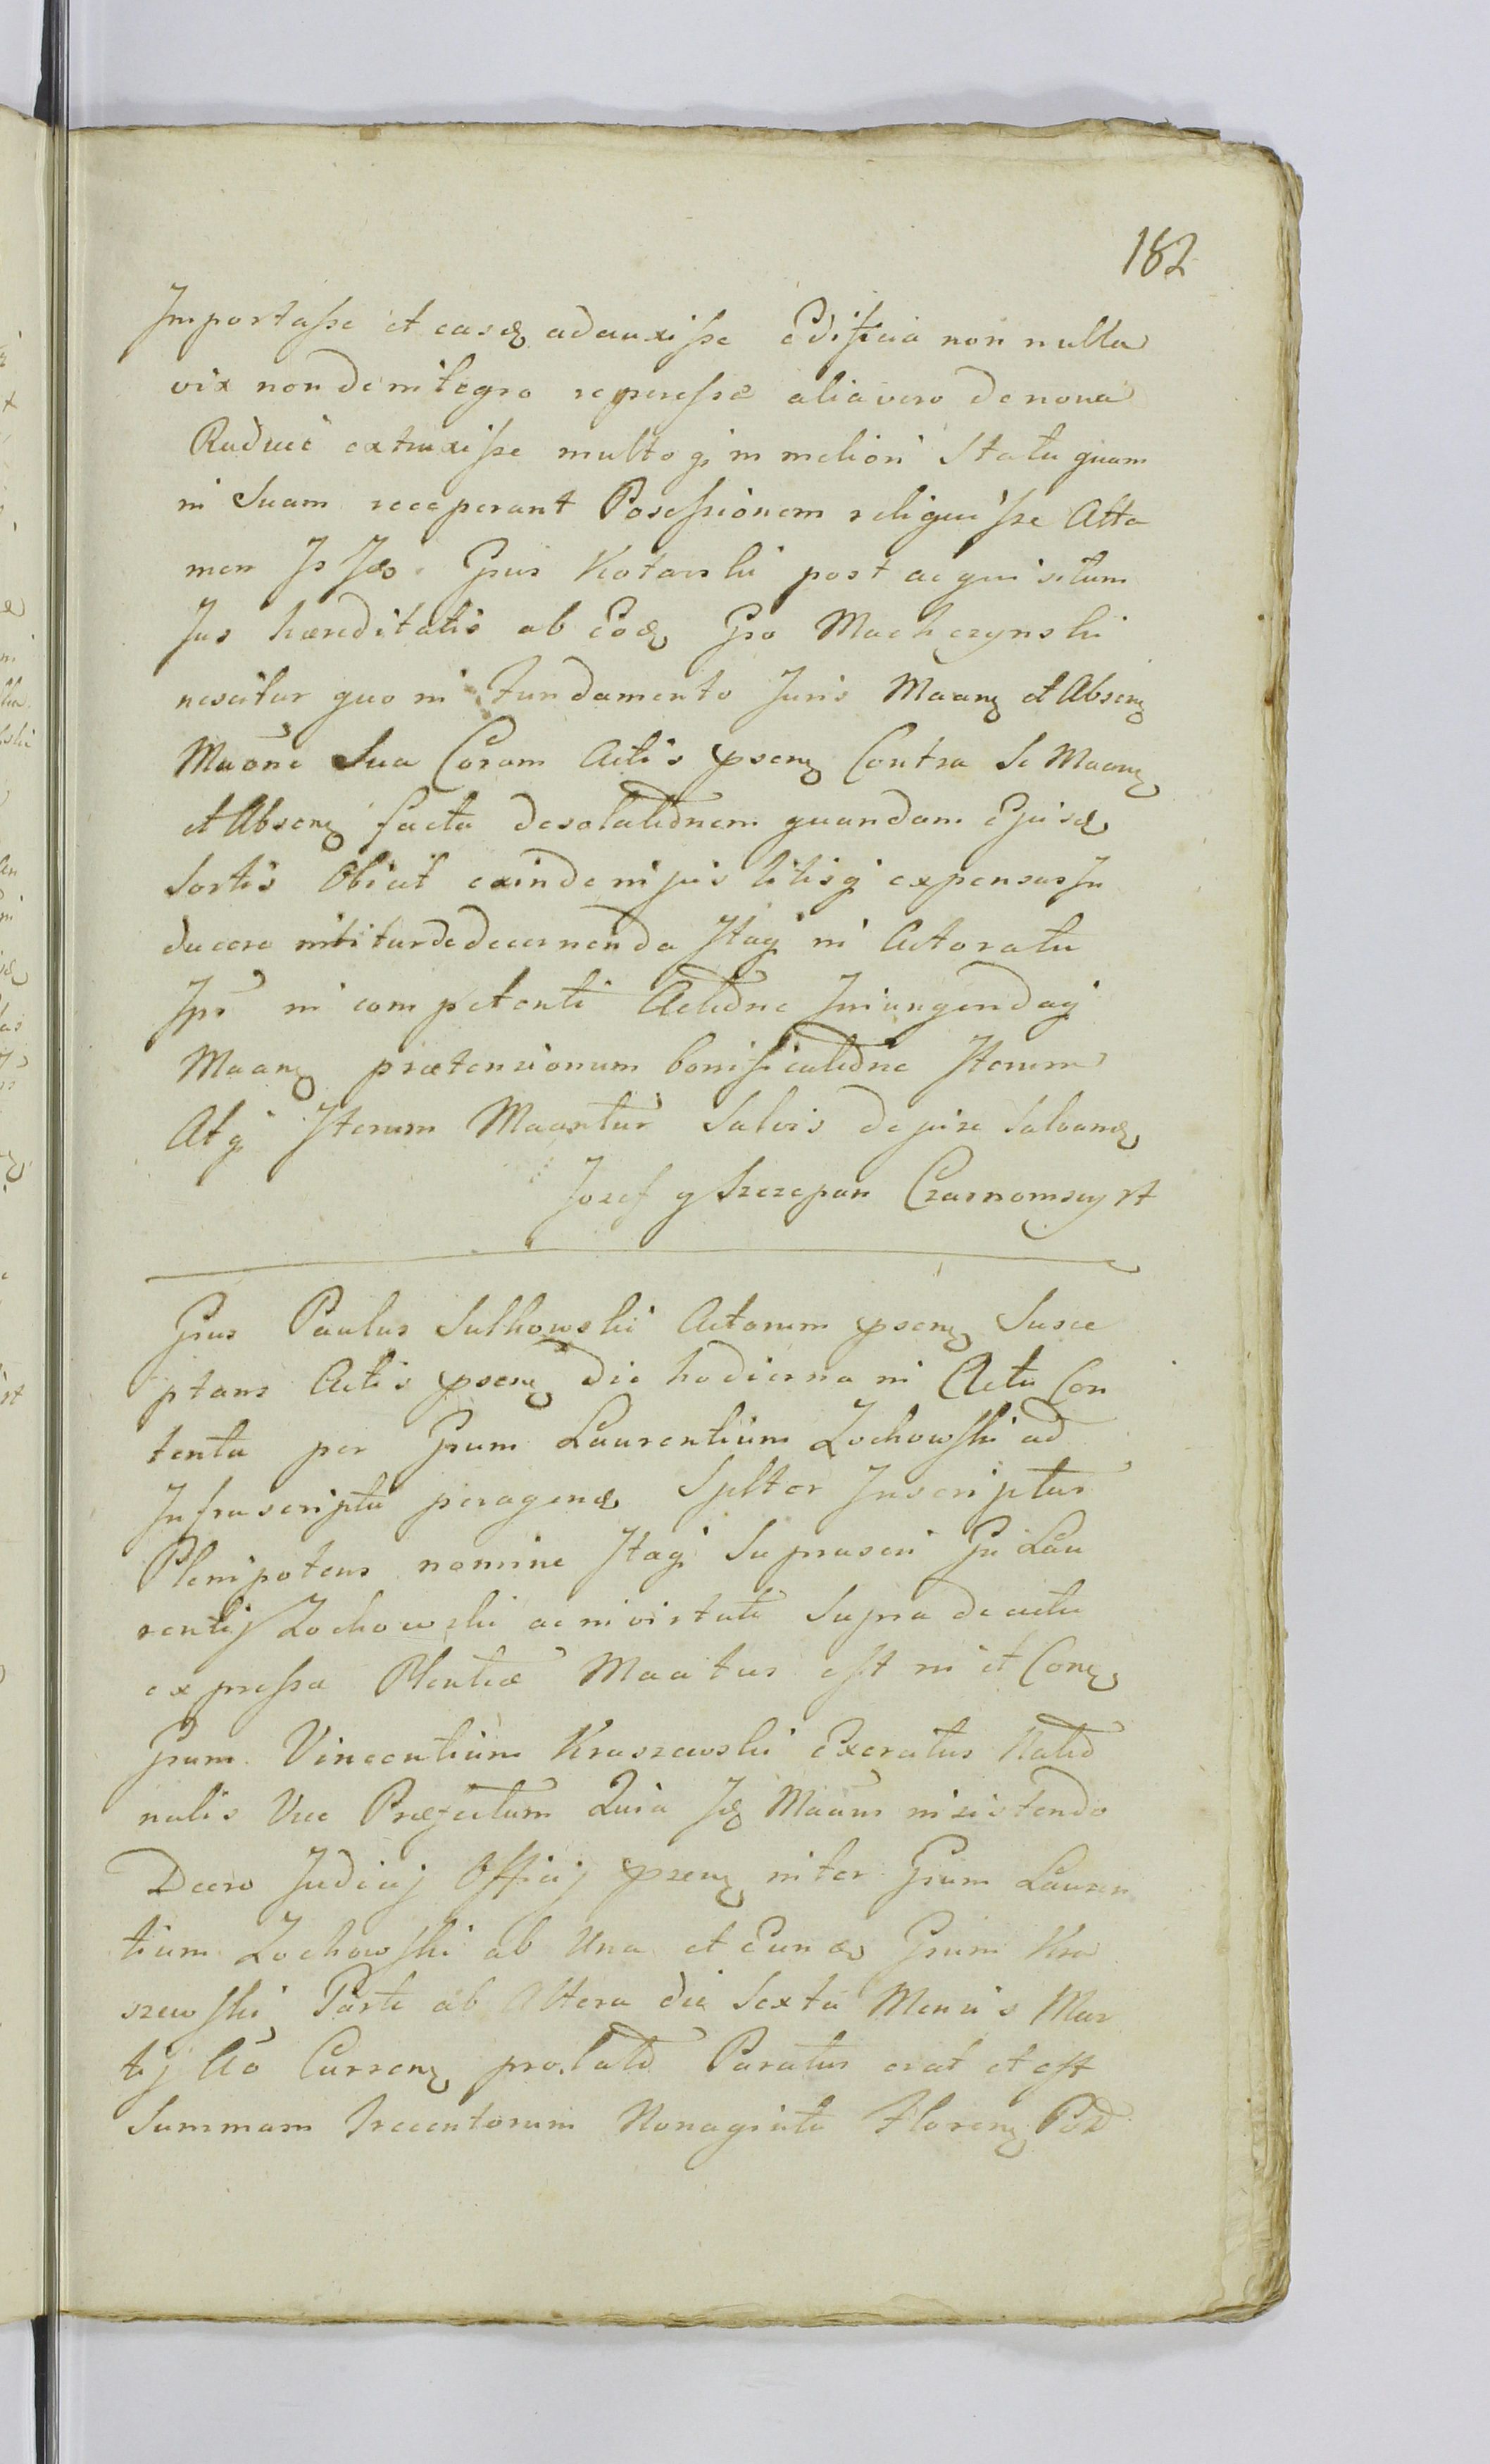 182
Importasse et easq adauxisse Edificia non nulla
vix non de integro reperasse alia vero de nova
Radice extruxisse multoq in meliori Statu quam
in Suam receperant Possessionem reliquisse Atta
men Is Idem Gsus Kotarski post acquisitum
Jus hæreditatis ab Eod Gso Machczynski
nescitur quo in fundamento Juris Maanz et Absenz
Maõne Sua Coram Actis psenz Contra Se Maanz
et Absenz facta desolationem quandam Ejusd
Sortis Obicit exinde in jus litisq expensas In
ducere nititur de decernenda Itaq in Actoratu
Ips in competenti Actione Iniungendaq
Maanz prætensionum bonificatione Iterum
Atq Iterum Maantur Salvis de jure Salvand
Jozef y Szczepan Czarnomscy
Gsus Paulus Sulkowski Actorum psenz Susce
ptans Actis psenz die hodierna in Actu Con
tenta per Gsum Laurentium Zochowski ad
Infrascripta peragend Spltr Inscriptus
Plenipotens nomine Itaq Suprascri Gsi Lau
rentij Zochowski ac in virtute Supra de actu
expressæ Plentiæ Maatus est in et Conz
Gsum Vincentium Kraszewski Exercitus Natio
nalis Vice Præfectum Quia Id Maans insistendo
Decro Judicij Officij psenz inter Gsum Lauren
tium Zochowski ab Una et Eund Gsum Kra
szewski Parte ab Altera die Sexta Mensis Mar
tij Ao Currenz prolato Paratus erat et est
Summam Trecentorum Nonaginta Florenz Pol